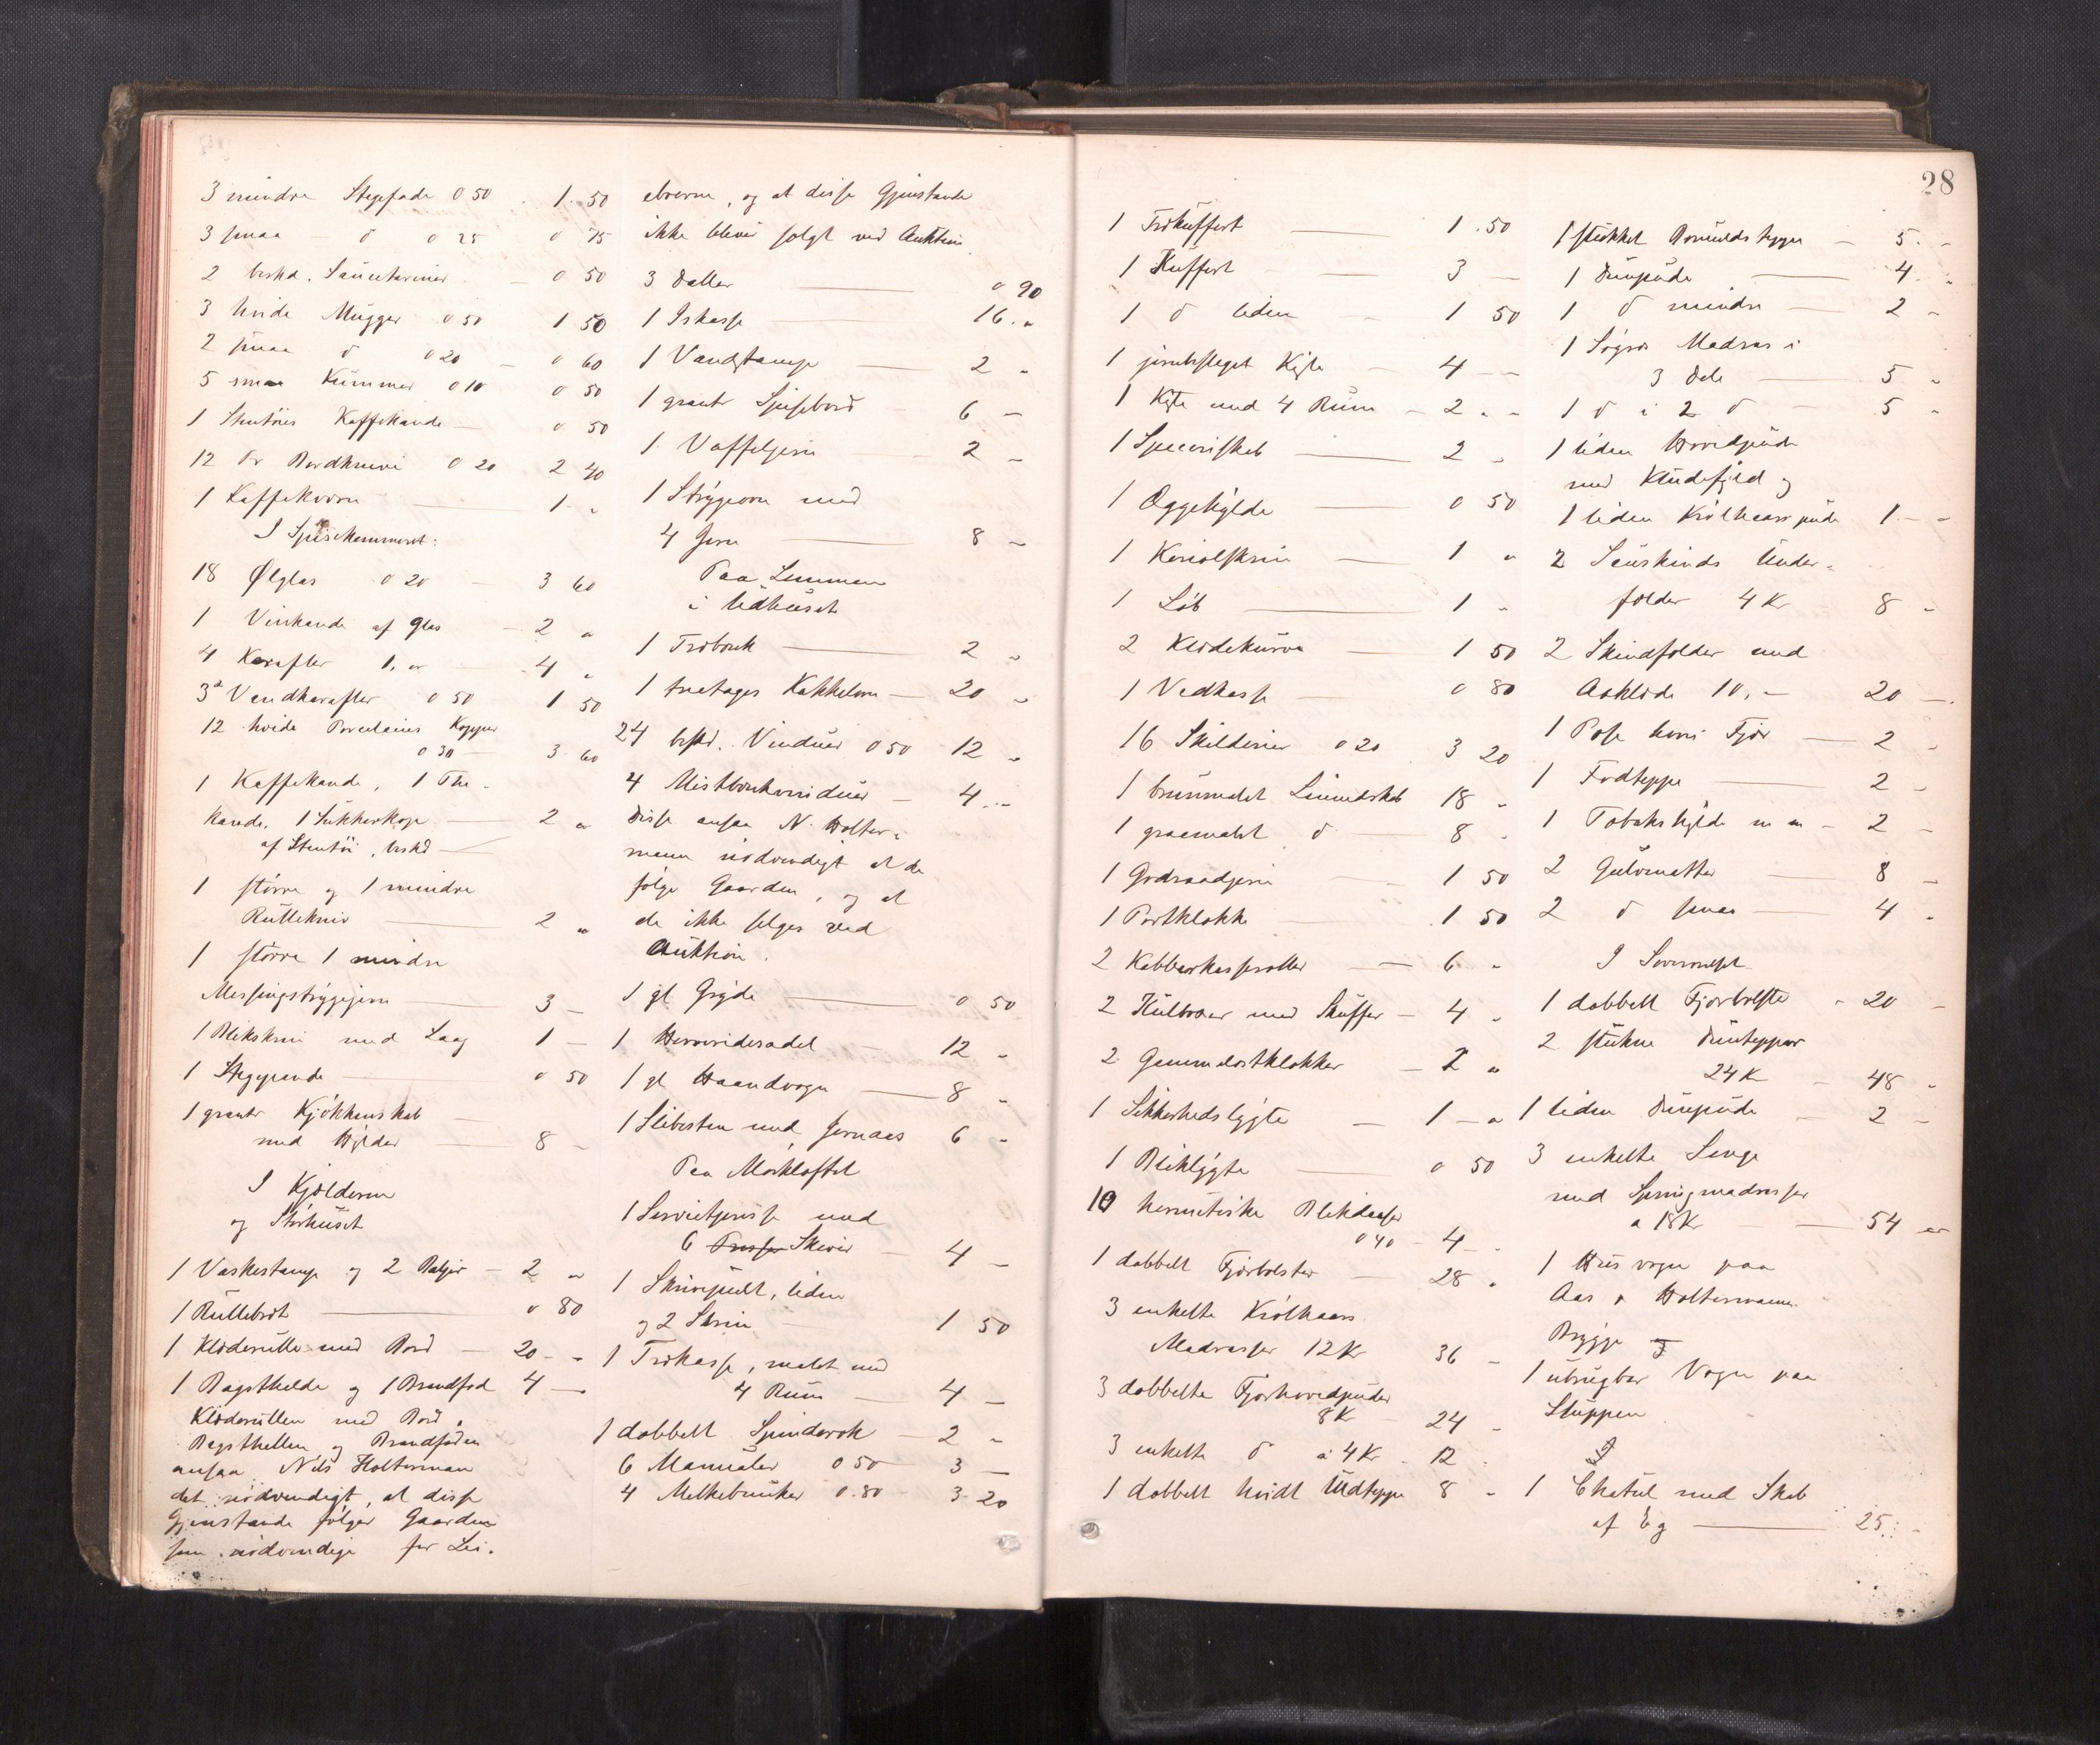 3 mindre Stegefade 0 50 . 1. 50
3 smaa — d 0 25 0 75
2 beskd. Saucetariner — 0 50
3 hvide Mugger 0 50 1 50
2 smaa d 0 20 — 0 60
5 smaa Kummer 0 10 0 50
1 Stentøies Kaffekande — 0 50
12 Pr Bordknive 0 20 2 40
1 Kaffekvern — 1 "
I Spisekammeret:
18 Ølglas 0 20 — 3 60
1 Vinkande af Glas — 2 "
4 Karafler 1. " — 4 "
3 Vandkarafler 0 50 1 50
12 hvide Porcelains Kopper
0 30 — 3 60
1 Kaffekande, 1 The-
kande, 1 Sukkerkop — 2 "
af Stentøi, beskd —
1 større og 1 mindre
Rullekniv — 2 "
1 større 1 mindre
Messingstrygejern — 3 —
1 Blikskrin med Laag 1 —
1 Stegepande — 0 50
1 grønt Kjøkkenskab —
med Hylder — 8 -
I Kjelderen
og Storhuset
1 Vaskestamp og 2 Baljer — 2 "
1 Rullebret — 0 80
1 Klæderulle med Bord — 20 - "
1 Bagsthelde og 1 Brendfad 4 —
Klæderullen med Bord,
Bagsthellen og Brandfaden
ansaa Nils Holterman
det nødvendigt, at disse
Gjenstande følger Gaarden
som nødvendige for Lei-
eboerne, og at disse Gjenstande
ikke blever solgt ved Auktion
3 Daller — 0 90
1 Iskasse — 16. "
1 Vandstampe — 2 "
1 grønt Spisebord — 6 —
1 Vaffeljern — 2 —
1 Strygeovn med
4 Jern — 8 —
Paa Lemmen
i Udhuset
1 Træbænk — 2 "
1 treetages Kakkelovn — 20 "
24 beskd. Vinduer 0 50 12 "
4 Mistbænkvinduer — 4 . -
Disse ansaa N. Holter-
mann nødvendigt at de
følge Gaarden, og at
de ikke selges ved
Auktion.
1 gl Gryde — 0 50
1 Herreridesadel 12 "
1 gl Haandvogn — 8 "
1 Slibesten med Jernaas 6 "
Paa Mørkloftet
1 Servietpresse med
6 Presser Skiver — 4 —
1 Skrivepult, liden
og 2 Skrin — 1 50
1 Trækasse, malet med
4 Rum — 4 —
1 dobbelt Spinderok — 2 "
6 Manualer 0 50 — 3 —
4 Melkebunker 0.80 — 3. 20
28
1 Trækuffert — 1. 50
1 Kuffert — 3 —
1 d liden — 1 50
1 jernbeslaget Kiste — 4 —
1 Kiste med 4 Rum — 2 " -
1 Speceriskab — 2 "
1 Æggehylde — 0 50
1 Kariolskrin — 1 "
1 Løb — 1 "
2 Klædekurve — 1 50
1 Vedkasse — 0 80
16 Skilderier 0 20 3 20
1 brunmalet Linnedskab 18 "
1 graamalet d — 8 "
1 Godraadjern — 1 50
1 Portklokke — 1 50
2 Kobberkasseroller — 6 "
2 Kulboxer med Skuffer — 4 "
2 Gammelostklokker — 2 "
1 Sikkerhedslygte — 1 — "
1 Bliklygte — 0 50
10 hermetiske Blikdaaser
0 40 — 4 — "
1 dobbelt Fjærbolster — 28 "
3 enkelte Krølhaars
Madrasser 12 Kr 36 —
3 dobbelte Fjærhovedpuder
8 Kr — 24 "
3 enkelte d à 4 Kr . 12 "
1 dobbelt hvidt Uldteppe 8 "
1 stukket Bomuldsteppe — 5. -
1 Dunpude — 4. "
1 d mindre — 2 "
1 Søgræs Madras i
3 Dele — 5 "
1 d i 2 d — 5 "
1 liden Hovedpude
med Kludefyld og
1 liden Krølhaarspude 1. —
2 Saueskinds Under-
folder 4 Kr 8 "
2 Skindfolder med
Aaklæde 10. — 20 —
1 Pose Fjær — 2 "
1 Fodteppe — 2 "
1 Tobakshylde m m — 2 —
2 Gulvmatter — 8 —
2 d smaa — 4 "
I Soveværelset
1 dobbelt Fjærbolster — 20 —
2 stukne Dunteppor
24 Kr — 48 "
1 liden Dunpude — 2 —
3 enkelte Senge
med Springmadrasser
a 18 Kr — 54 "
1 Husvogn paa
Aas Holtermanns
Brygge
1 ubrugbar Vogn paa
Sluppen
1 Chatul med Skab
af Eg — 25. -